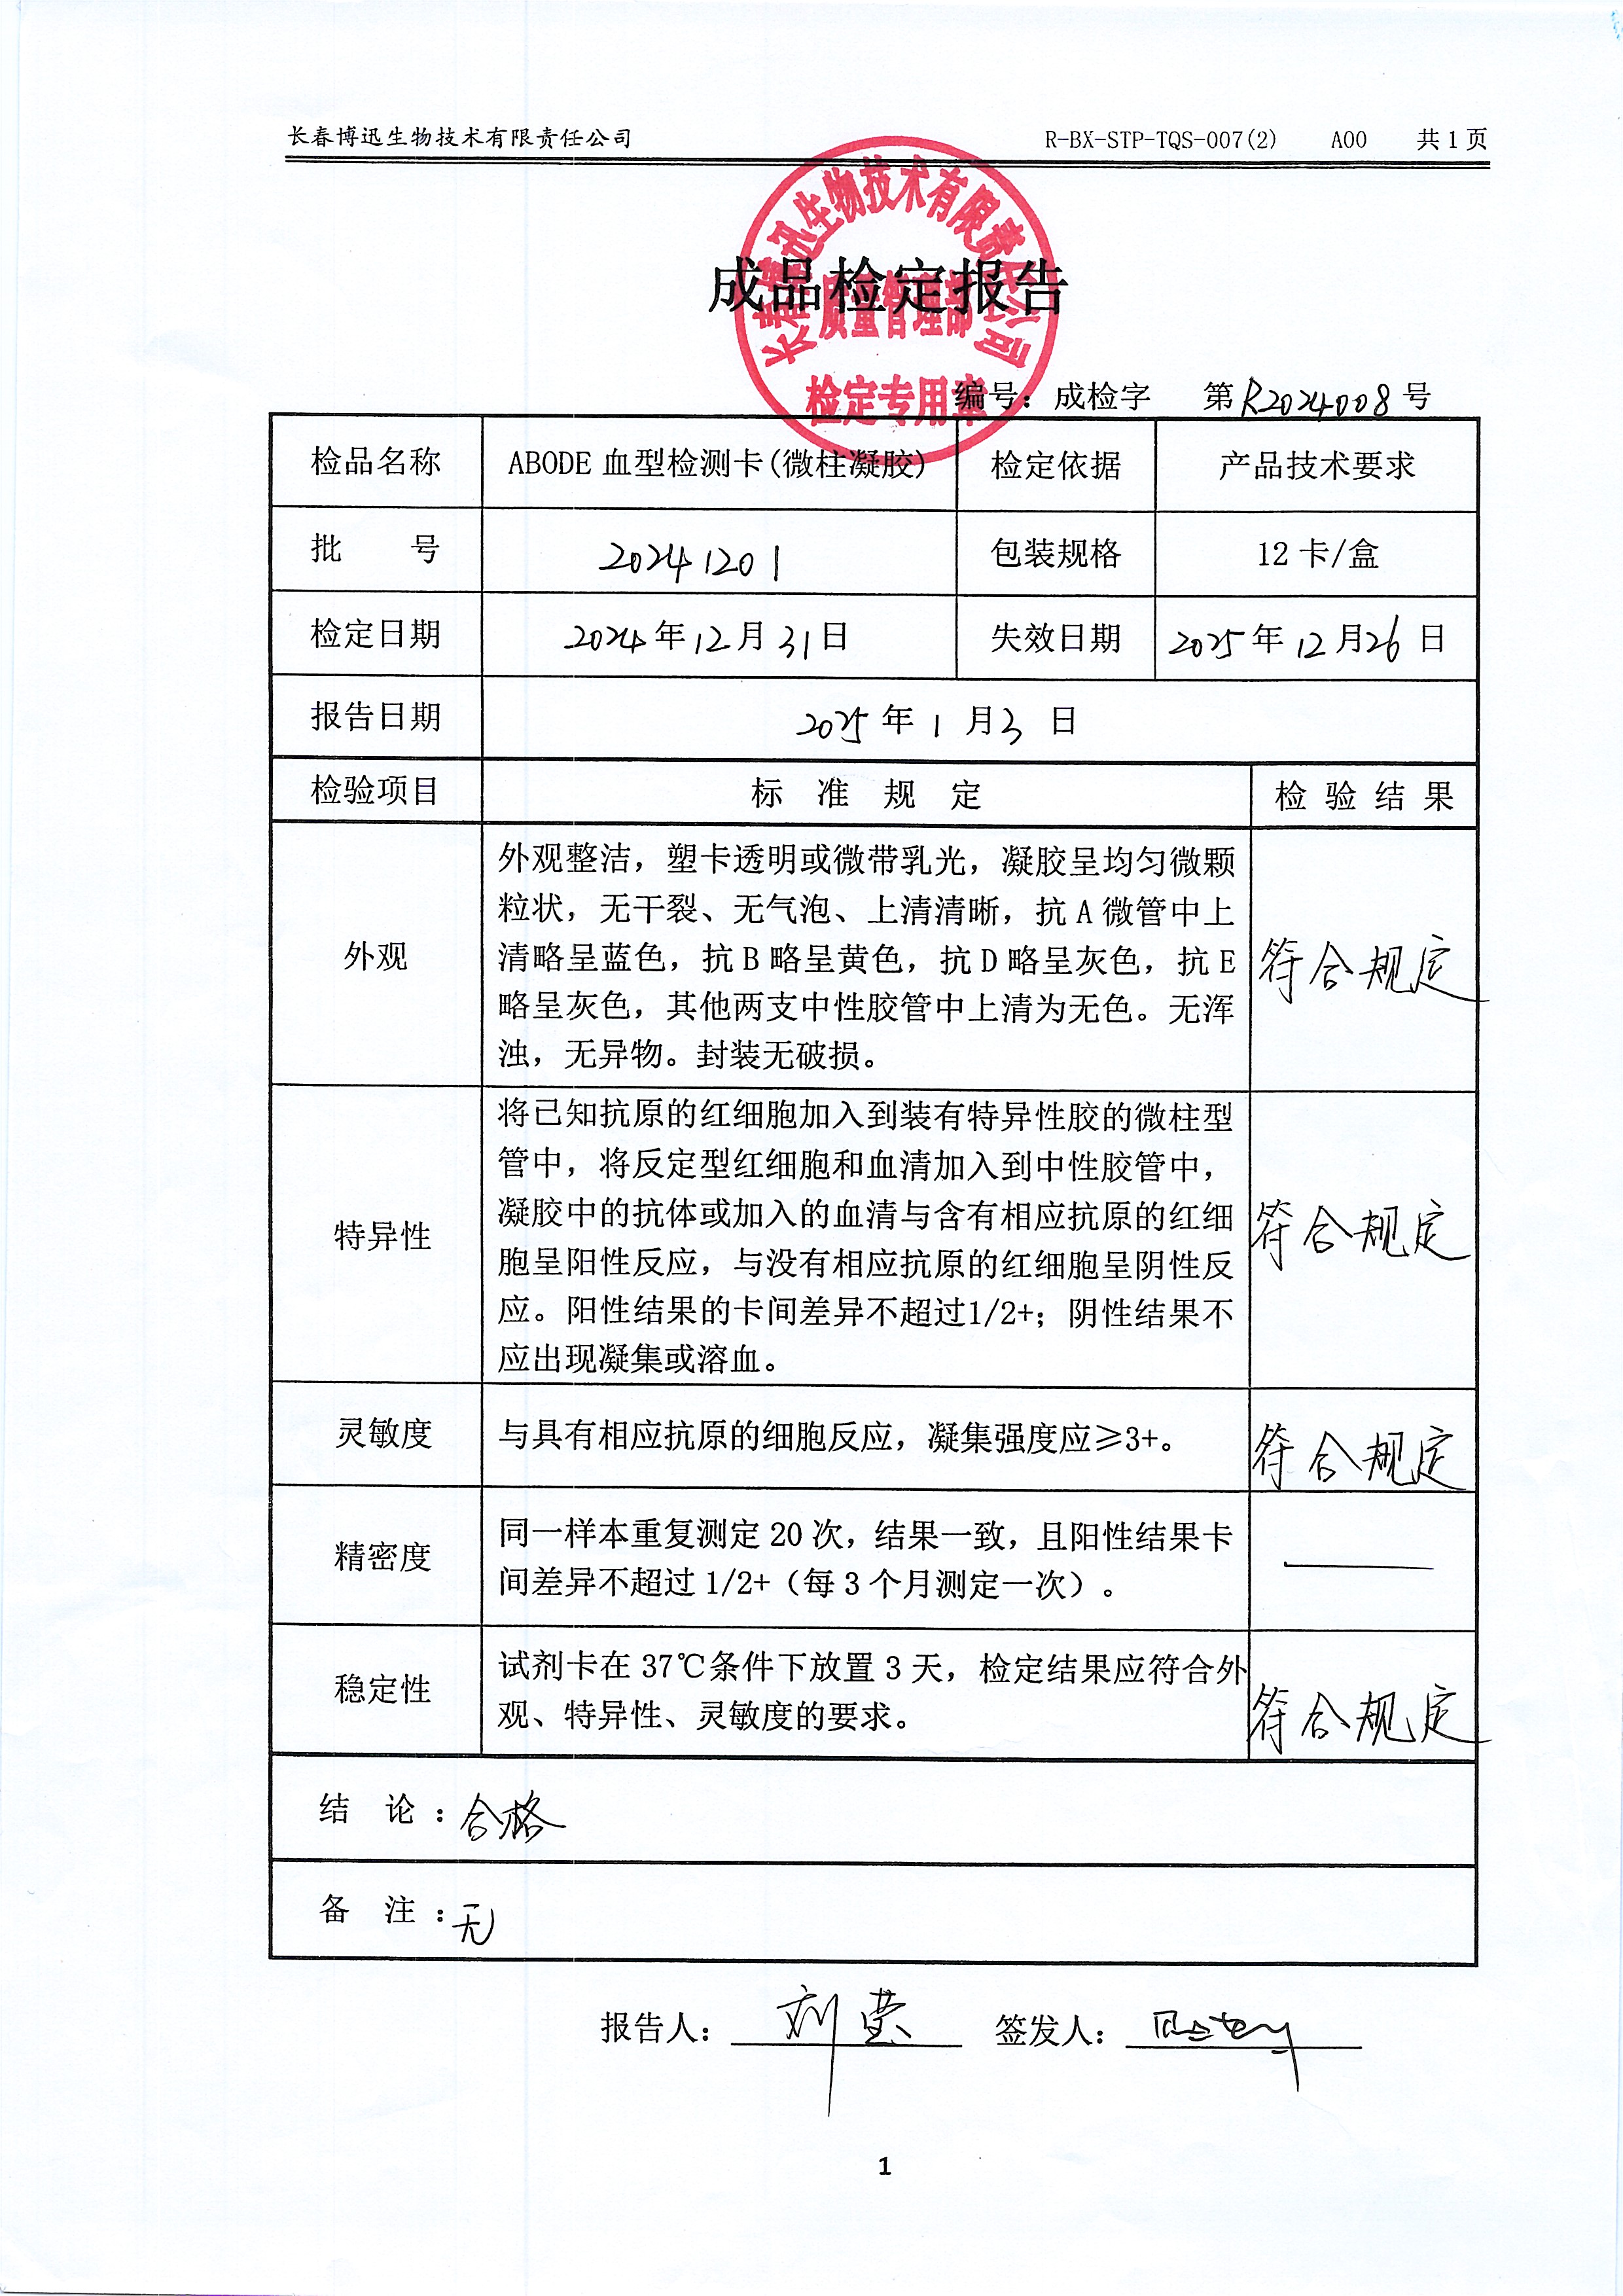 长春博迅生物技术有限责任公司 R-BX-STP-TQS-007(2) A00 共1页
长春博迅生物技术有限责任公司
质量管理部
检定专用章
成品检定报告
编号：成检字 第R2024008号
检品名称 ABODE血型检测卡(微柱凝胶) 检定依据 产品技术要求
批 号 20241201 包装规格 12卡/盒
检定日期 2024年12月31日 失效日期 2025年12月26日
报告日期 2025年1月3日
检验项目 标准规定 检验结果
外观
外观整洁，塑卡透明或微带乳光，凝胶呈均匀微颗
粒状，无干裂、无气泡、上清清晰，抗A微管中上
清略呈蓝色，抗B略呈黄色，抗D略呈灰色，抗E
略呈灰色，其他两支中性胶管中上清为无色。无浑
浊，无异物。封装无破损。
符合规定
特异性
将已知抗原的红细胞加入到装有特异性胶的微柱型
管中，将反定型红细胞和血清加入到中性胶管中，
凝胶中的抗体或加入的血清与含有相应抗原的红细
胞呈阳性反应，与没有相应抗原的红细胞呈阴性反
应。阳性结果的卡间差异不超过1/2+；阴性结果不
应出现凝集或溶血。
符合规定
灵敏度 与具有相应抗原的细胞反应，凝集强度应≥3+。 符合规定
精密度
同一样本重复测定20次，结果一致，且阳性结果卡
间差异不超过1/2+（每3个月测定一次）。
——
稳定性
试剂卡在37℃条件下放置3天，检定结果应符合外
观、特异性、灵敏度的要求。
符合规定
结 论：合格
备 注：无
报告人：刘莹 签发人：
1